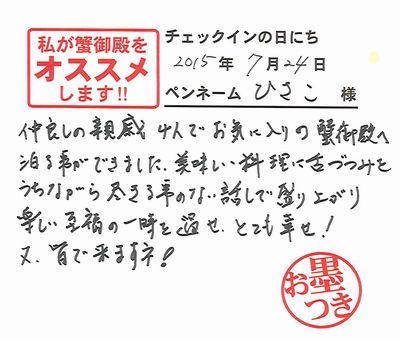 私が蟹御殿を
オススメ
します!!
チェックインの日にち
2015年 7月24日
ペンネーム ひさこ 様
仲良しの親戚 4人でお気に入りの蟹御殿へ
泊る事ができました。美味しい料理に舌づつみを
うちながら 尽きる事のない話しで盛り上がり
楽しい至福の一時を過せ、とても幸せ!
又、皆で来ますネ!
お墨
つき